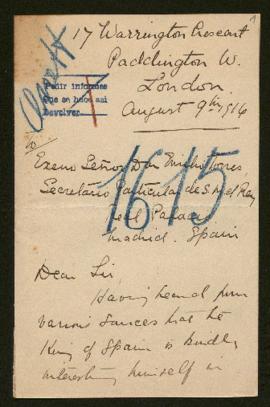 17 Warrington Crescent
Paddington W.
London.
August 9th 1916
Pedir informes
Que se haga así
Devolver
To
Exmo Señor Don Emilio Torres,
Secretario Particular de S.M. el Rey
Real Palacio
Madrid. Spain
1615
Dear Sir,
Having heard from
various sources that the
King of Spain is kindly
interesting himself in